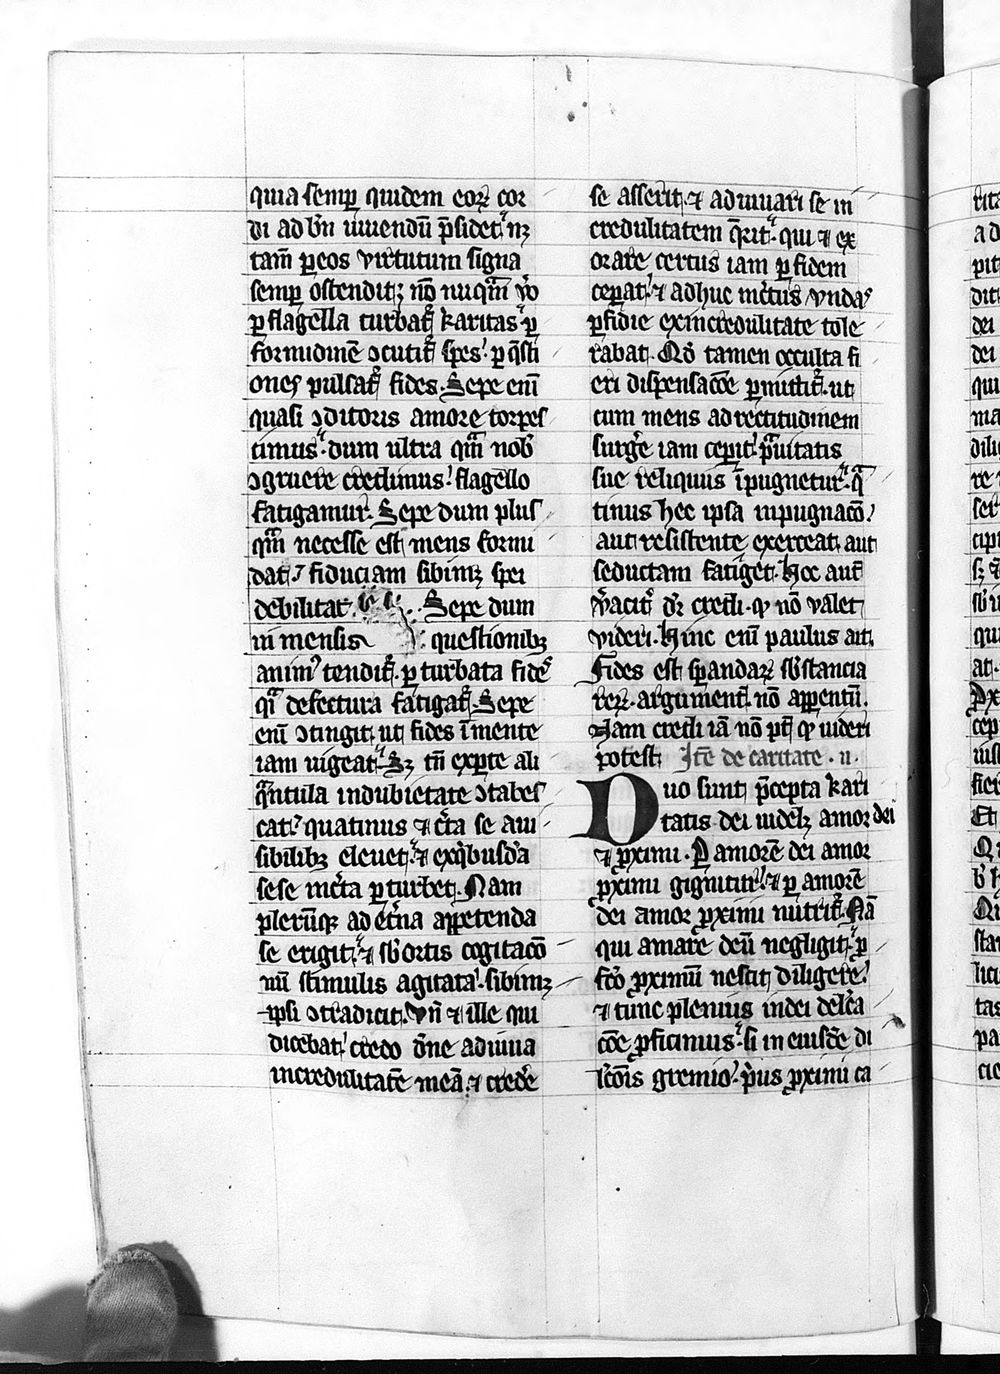 quia semꝑ quidem eoꝝ cor
di ad bn̄ viuendū p̄sidet nꝫ
tam̄ ꝑ eos virtutum signa
semꝑ ostenditꝫ nō nuqm̄ v̾o
ꝑ flagella turbat᷑ karitas ꝑ
formidinē ↄcutit᷑ spes ꝑ q̄sti
ones pulsat᷑ fides. Sepe eni̅
quasi ↄditoris amore torpes
cimus dum ultra qm̄ nob̾
ↄgruere credimus flagello
fatigamur. Sepe dum plus
qm̄ necesse est mens formi
dat fiduciam sibimꝫ spei
debilitat. Sepe dum
in mensis questionibꝫ
anim᷒ tendit᷑ ꝑturbata fide
q̄ defectura fatigat᷑. Sepe
eni̅ ↄtingit ut fides ī mente
iam uigeat. Sꝫ tn̄ ex ꝑte ali
q̄ntula in dubietate ↄtabes
cat quatinus ⁊ c̾ta se a ui
sibilibꝫ eleuet ⁊ ex qͥbusda̅
sese inc̾ta ꝑturbet. Nam
plerūqꝫ ad et̾na appetenda
se erigit ⁊ sb̾ortis cogitaco̅
nu̅ stimulis agitata sibimꝫ
ipsi ↄtradicit. Vn̄ ⁊ ille qui
dicebat credo dn̄e adiuua
incredulitatē meā ⁊ crede̾
se asserit ⁊ adiuuari se in
credulitatem q̄rit qui ⁊ ex
orare certus iam ꝑ fidem
ceperat ⁊ adhuc inc̾tus vndas
ꝑfidie ex incredulitate tole
rabat. Qd̾ tamen occulta fi
eri dispensacōe ꝑmittit᷑ ut
cum mens ad rectitudinem
surge̾ iam cepit pͣuitatis
sue reliquiis īpugnetur qͣ
tinus hec ipsa inpugnacō
aut resistente exerceat aut
seductam fatiget. Hoc aut̄
v̾acit᷑ dr̄ credi qͻ nō valet
videri. Hinc eni̅ paulus ait
Fides est spandaꝝ sb̾stancia
reꝝ argument᷒ nō appentiū.
Iam credi iā nō pt̄ qͻ uideri
potest. Itē de caritate . ii.
Duo sunt p̄cepta kari
tatis dei uidelꝫ amor dei
⁊ ꝓximi. Per amorē dei amor
ꝓximi gignitur ⁊ ꝑ amorē
dei amor ꝓximi nutrit᷑. Nā
qui amare deū negligit ꝓ
fc̄o ꝓximū nescit diligere
⁊ tunc plenius in dei delc̄a
cōe ꝓficimus si in eiusdē di
lc̄onis gremio pͥus ꝓximi ca